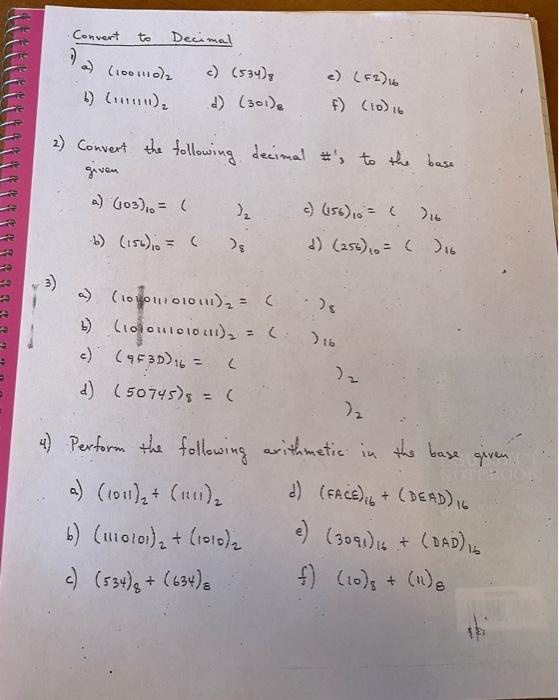 Convert to Decimal
1) a) (1001110)₂ c) (534)₈ e) (F2)₁₆
b) (1111111)₂ d) (301)₈ f) (10)₁₆
2) Convert the following decimal #'s to the base
given
a) (103)₁₀ = ( )₂ c) (156)₁₀ = ( )₁₆
b) (156)₁₀ = ( )₈ d) (256)₁₀ = ( )₁₆
3)
a) (101011010111)₂ = ( )₈
b) (101011010111)₂ = ( )₁₆
c) (9F3D)₁₆ = ( )₂
d) (50745)₈ = ( )₂
4) Perform the following arithmetic in the base given
a) (1011)₂ + (1111)₂ d) (FACE)₁₆ + (DEAD)₁₆
b) (1110101)₂ + (1010)₂ e) (3091)₁₆ + (DAD)₁₆
c) (534)₈ + (634)₈ f) (10)₈ + (11)₈